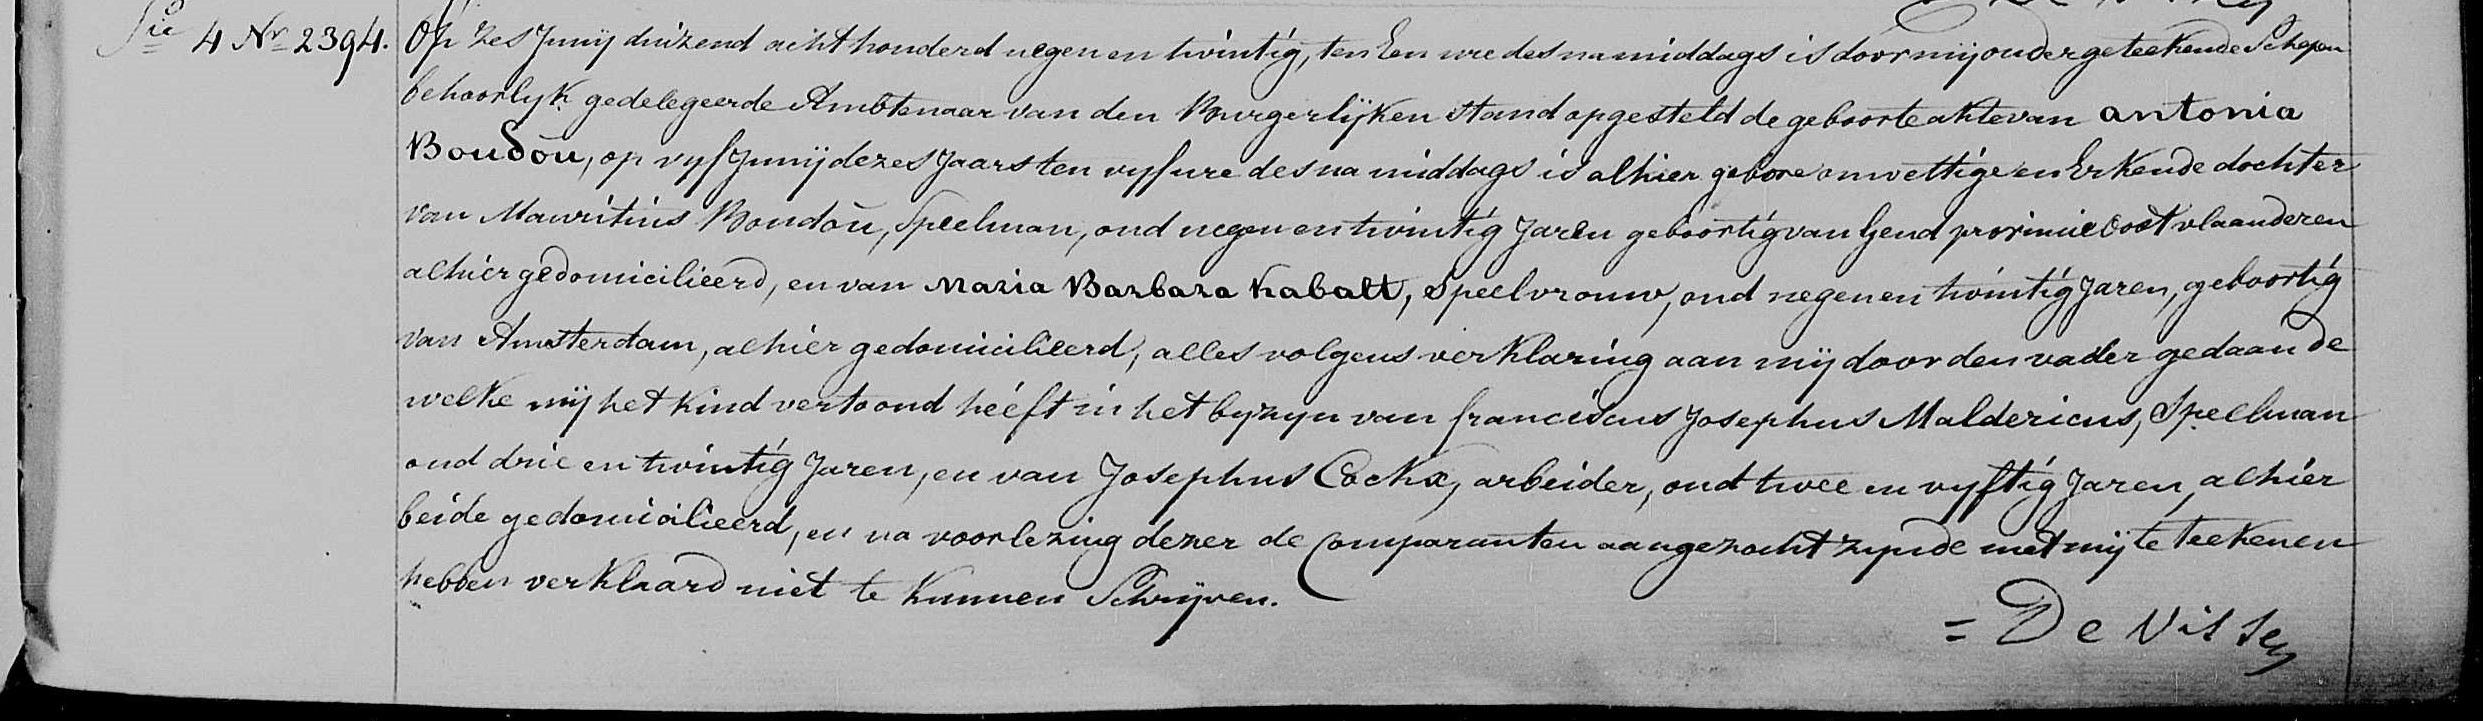 Sie 4 Nr 2394. Op zes Junij duizend acht honderd negen en twintig, ten Een ure des namiddags is door mij ondergeteekende Schepen
behoorlyk gedelegeerde Ambtenaar van den Burgerlijken stand opgesteld de geboorteakte van antonia
Boudou, op vyf Junij dezes Jaars ten vyf ure des na middags is alhier gebore onwettige en Erkende dochter
van Mauritius Boudou, Speelman, oud negen en twintig Jaren geboortig van Gend provincie Oost vlaanderen
alhier gedomicilieerd, en van Maria Barbara Kabalt, Speelvrouw, oud negen en twintig Jaren, geboortig
van Amsterdam, alhier gedomicilieerd, alles volgens verklaring aan mij door den vader gedaan de
welke mij het Kind vertoond heeft in het byzyn van franciscus Josephus Maldericus, Speelman
oud drie en twintig Jaren, en van Josephus Cockx, arbeider, oud twee en vyftig Jaren, alhier
beide gedomicilieerd, en na voorlezing dezer de Comparanten aangezocht zynde met mij te teekenen
hebben verklaard niet te kunnen Schrijven.
= De Visser